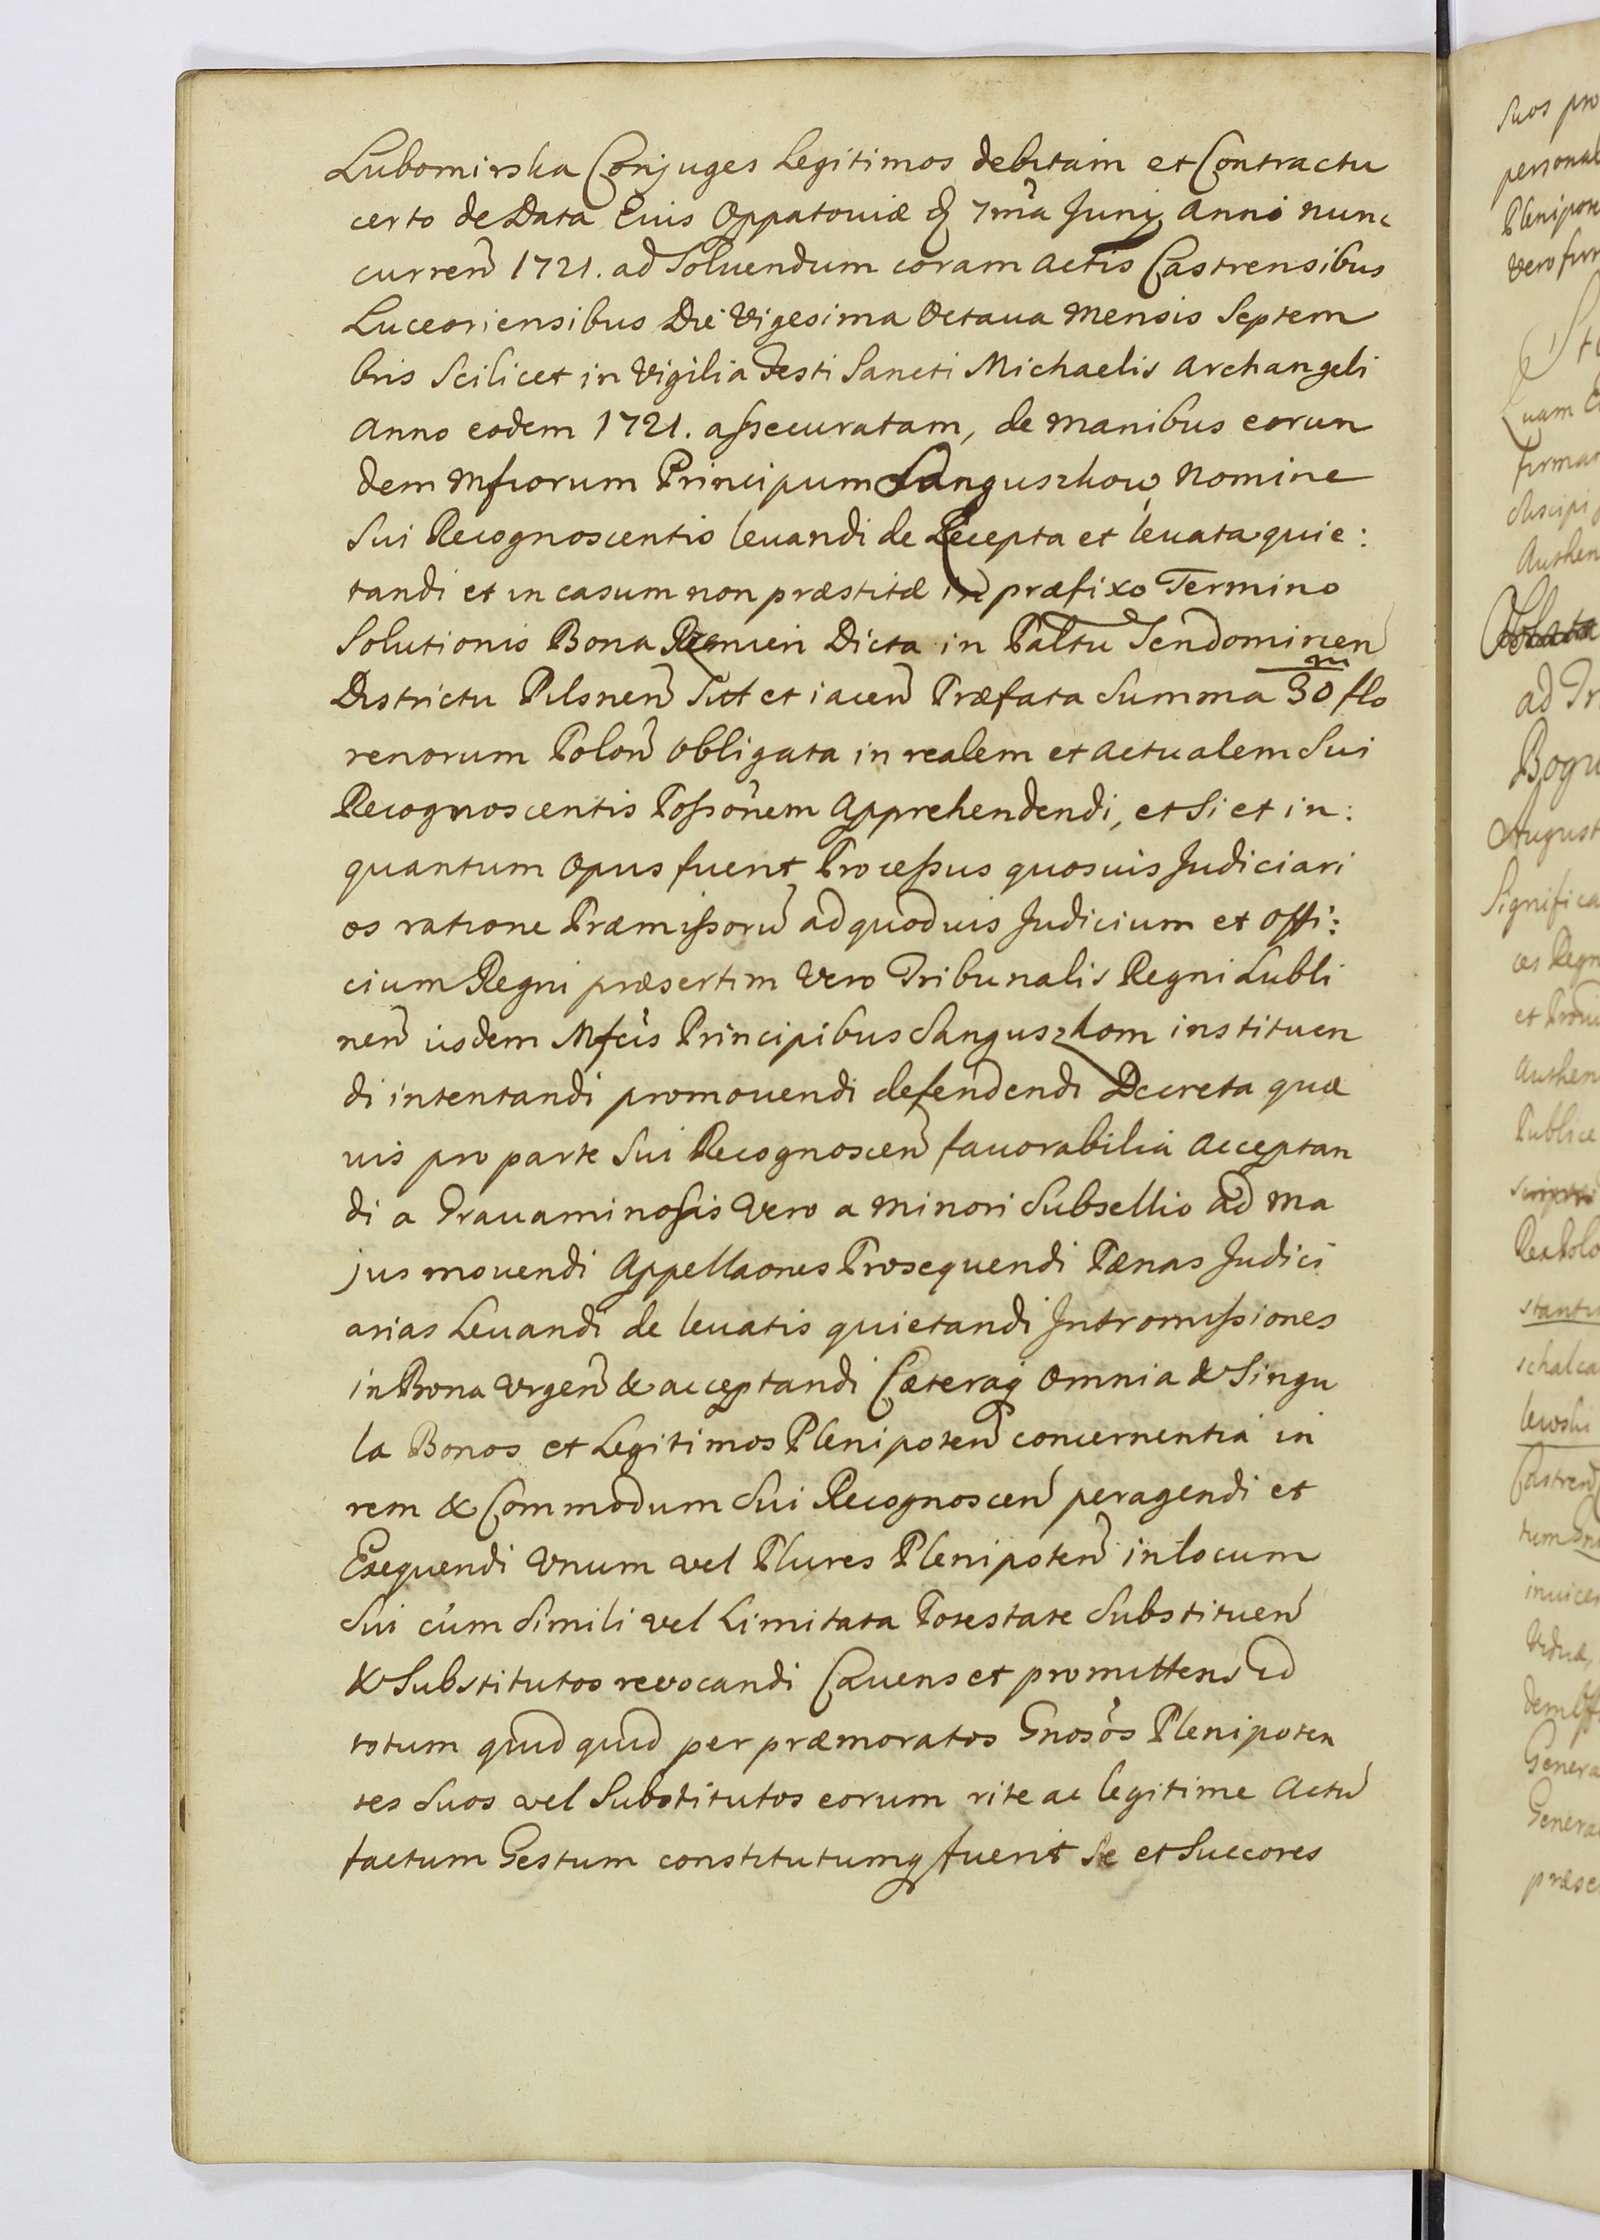 Lubomirska Conjuges Legitimos debitam et Contractu
certo de Data Eius Oppatoviæ d 7ma Junij Anno nunc
curren 1721. ad Soluendum coram Actis Castrensibus
Luceoriensibus Die Vigesima Octaua Mensis Septem
bris Scilicet in Vigilia Festi Sancti Michaelis Archangeli
Anno eodem 1721. assecuratam, de manibus eorun
dem Mficorum Principum Sanguszkow Nomine
Sui Recognoscentis leuandi de Recepta et leuata quie:
tandi et in casum non præstitæ in præfixo Termino
Solutionis Bona Dicta in Paltu Sendomirien
Districtu Pilsnen Sitt et iacen Præfata Summa 30 m flo
renorum Polon obligata in realem et actualem Sui
Recognoscentis Possonem Apprehendendi, et Si et in:
quantum Opus fuerit Processus quosuis Judiciari
os ratione Præmissoru ad quoduis Judicium et Offi:
cium Regni præsertim Vero Tribunalis Regni Lubli
nen iisdem Mfcis Principibus Sanguszkom instituen
di intentandi promouendi defendendi Decreta quæ
uis pro parte Sui Recognoscen fauorabilia acceptan
di a Grauaminosis Vero a minori Subsellio ad ma
jus mouendi Appellaones Prosequendi Pænas Judici
arias Leuandi de leuatis quietandi Intromissiones
in Bona Vrgen & acceptandi Cæteraq Omnia & Singu
la Bonos et Legitimos Plenipoten concernentia in
rem & Commodum Sui Recognoscen peragendi et
Exequendi Vnum vel Plures Plenipoten in locum
Sui cum Simili vel Limitata Potestate Substituen
& Substitutos revocandi Cauens et promittens id
totum quid quid per præmoratos Gnosos Plenipoten
tes Suos vel Substitutos eorum rite ac legitime Actu
factum Gestum constitutumq fuerit Se et Succores
Suos pro